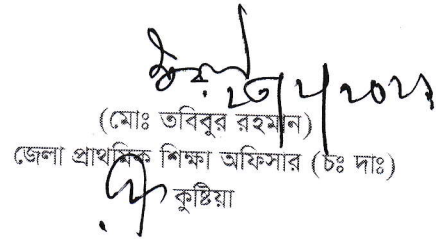 (মোঃ তবিবুর রহমান)
জেলা প্রাথমিক শিক্ষা অফিসার (চঃ দাঃ)
কুষ্টিয়া